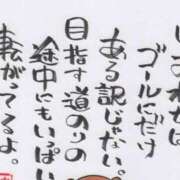 しあわせは
ゴールにだけ
ある訳じゃない。
目指す道のりの
途中にもいっぱい
転がってるよ。